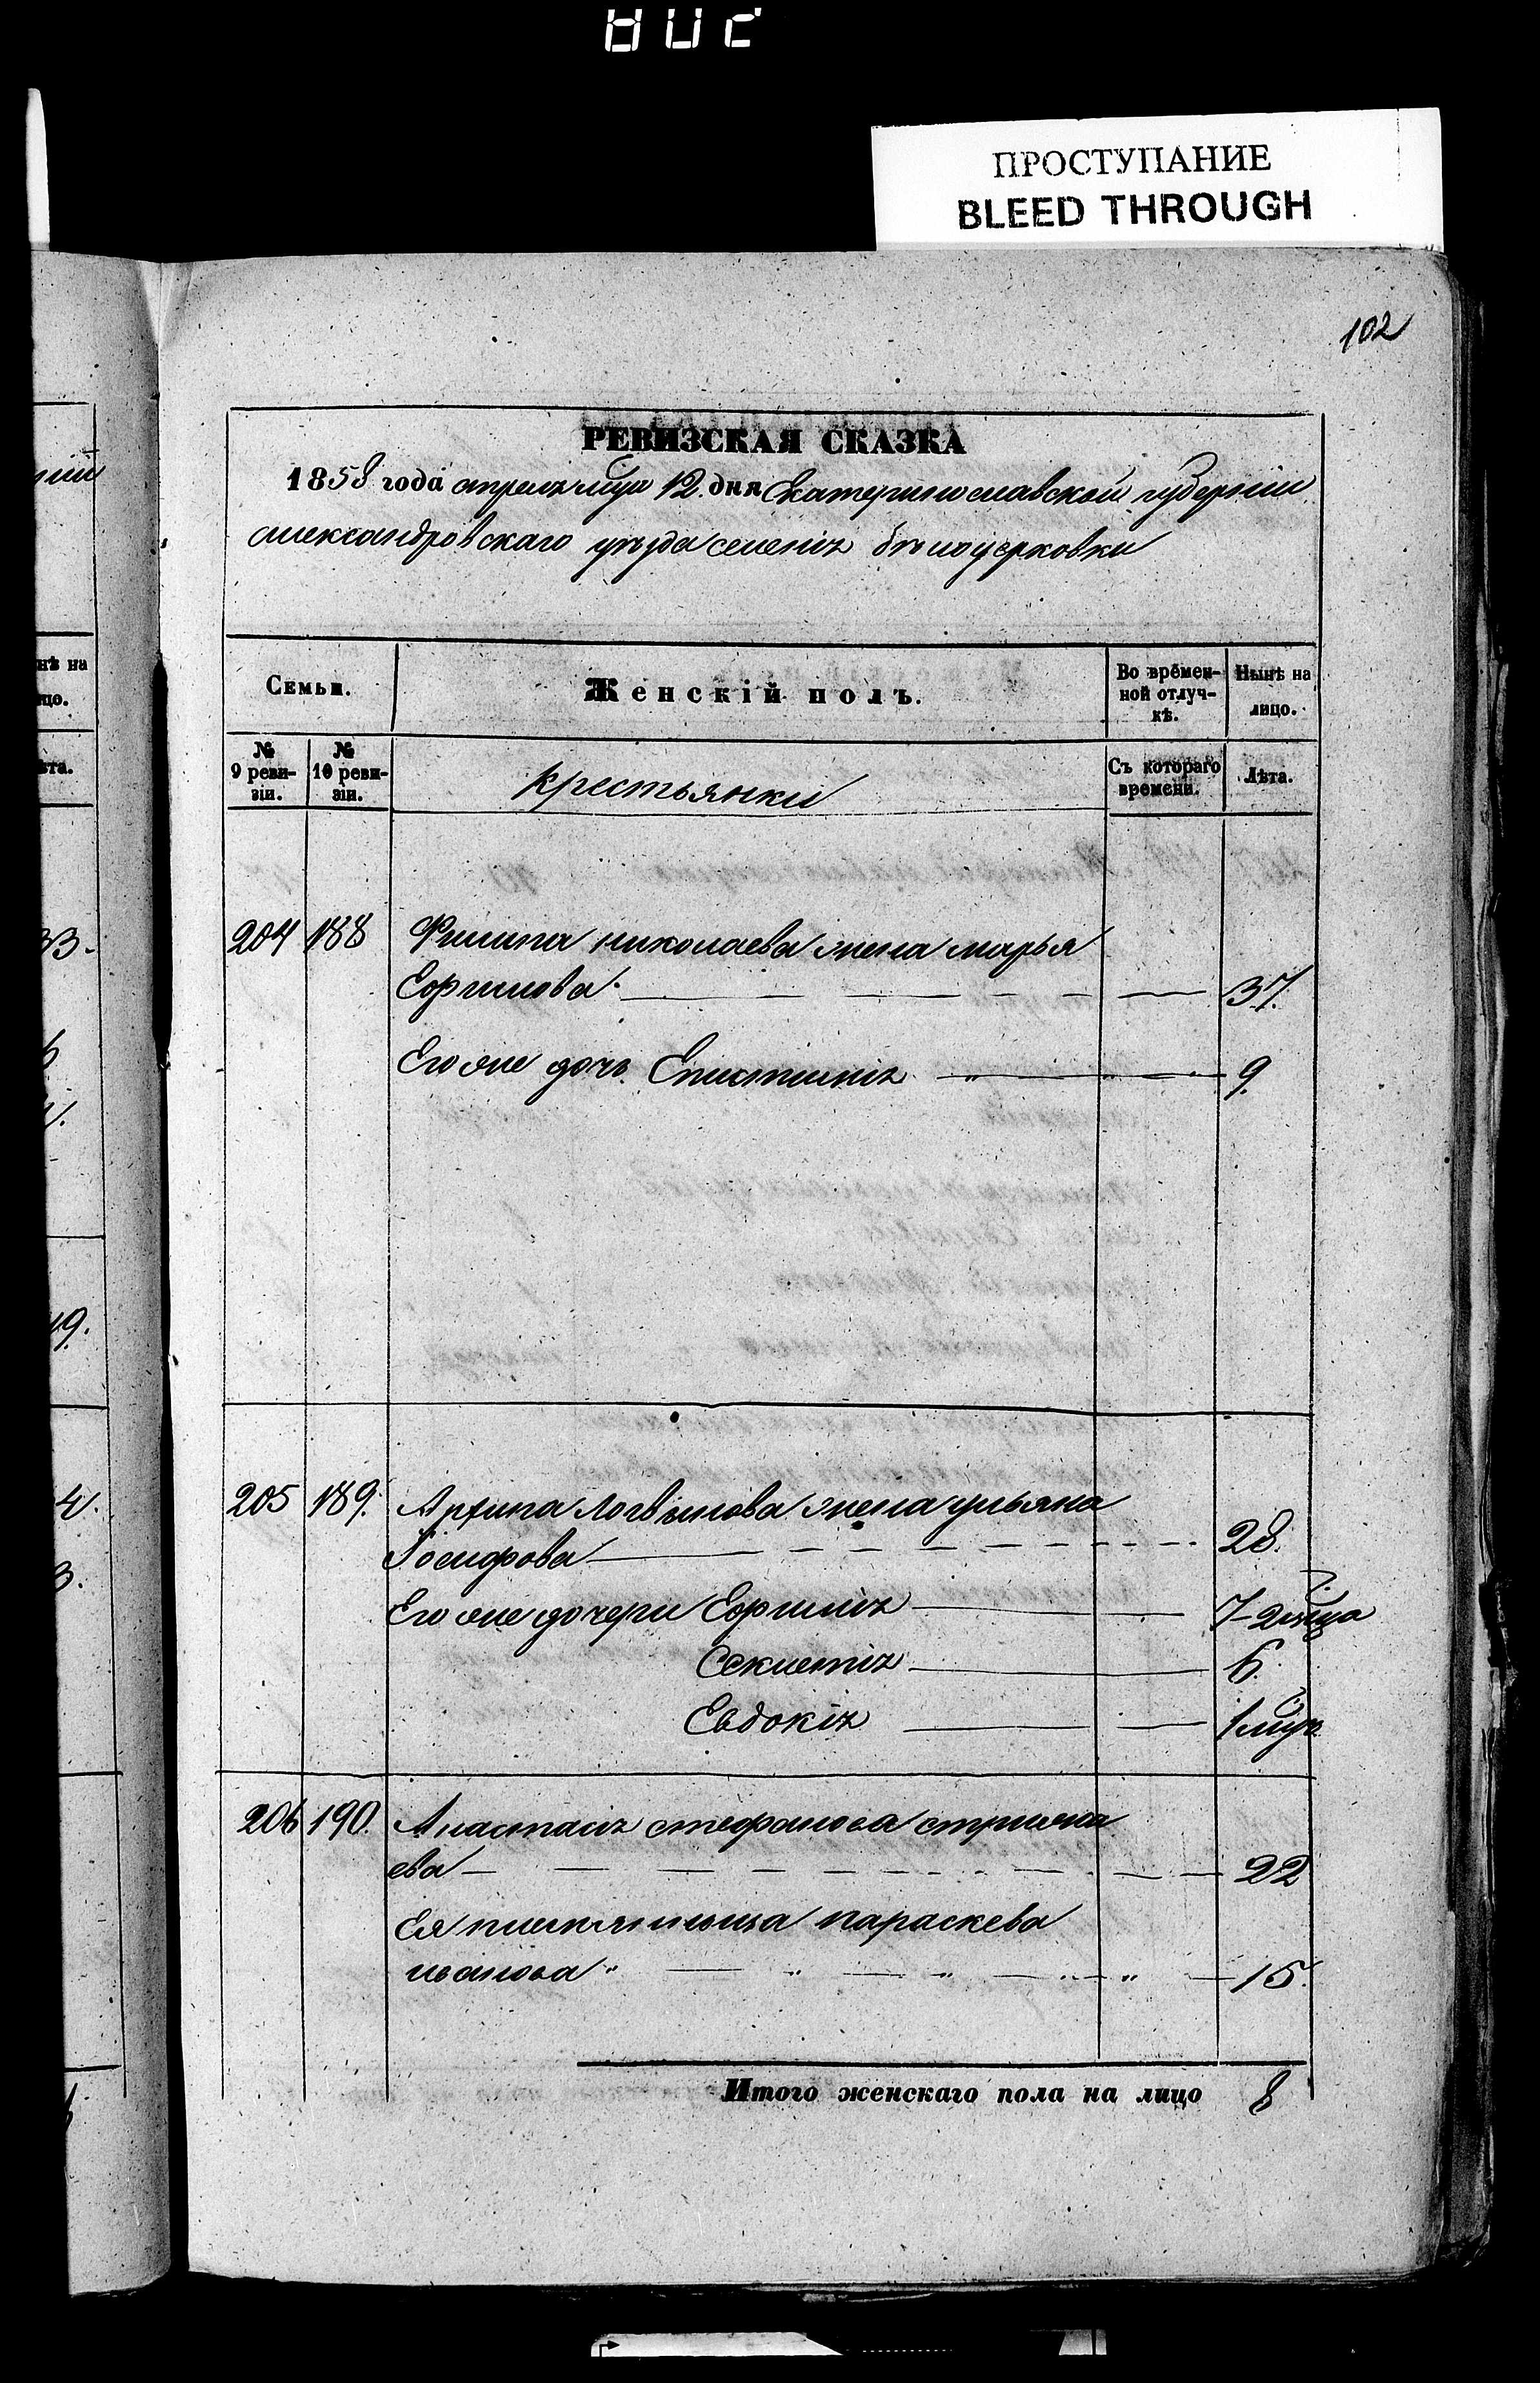 ПРОСТУПАНИЕ
BLEED THROUGH
102
РЕВИЗСКАЯ СКАЗКА
1858 года апреля мца 12 дня Екатеринославской губерніи
александровскаго уезда селенія белоцерковки
Семьи.
Женскій полъ.
Во времен-
ной отлуч-
кѣ.
Нынѣ на
лицо.
№
9 реви-
зіи.
№
10 реви-
зіи.
крестьянки
Съ котораго
времени.
Лѣта.
204 188 Филипа николаева жена марья
Ефимова 37.
Его же дочь Епистимія 9.
205 189. Архипа Логвинова жена ульяна
Іосифова 28.
Его же дочери Ефимія 7-2мца
Секлетія 6.
Евдокія 1 мцъ
206 190. Анастасія стефанова
ева 22
Ея племянница параскева
иванова 15.
Итого женскаго пола на лицо 8